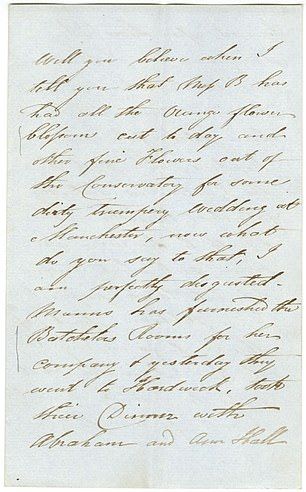 Will you believe when I
tell you that Mrs B has
had all the Orange flower
blossom cut to day and
other fine Flowers out of
the Conservatory for some
dirty trumpery Wedding at
Manchester, now what
do you say to that, I
am perfectly disgusted.
has furnished the
Batchelors Rooms for her
company & yesterday they
went to Hardwick, took
their Dinner with
Abraham and Ann Hall